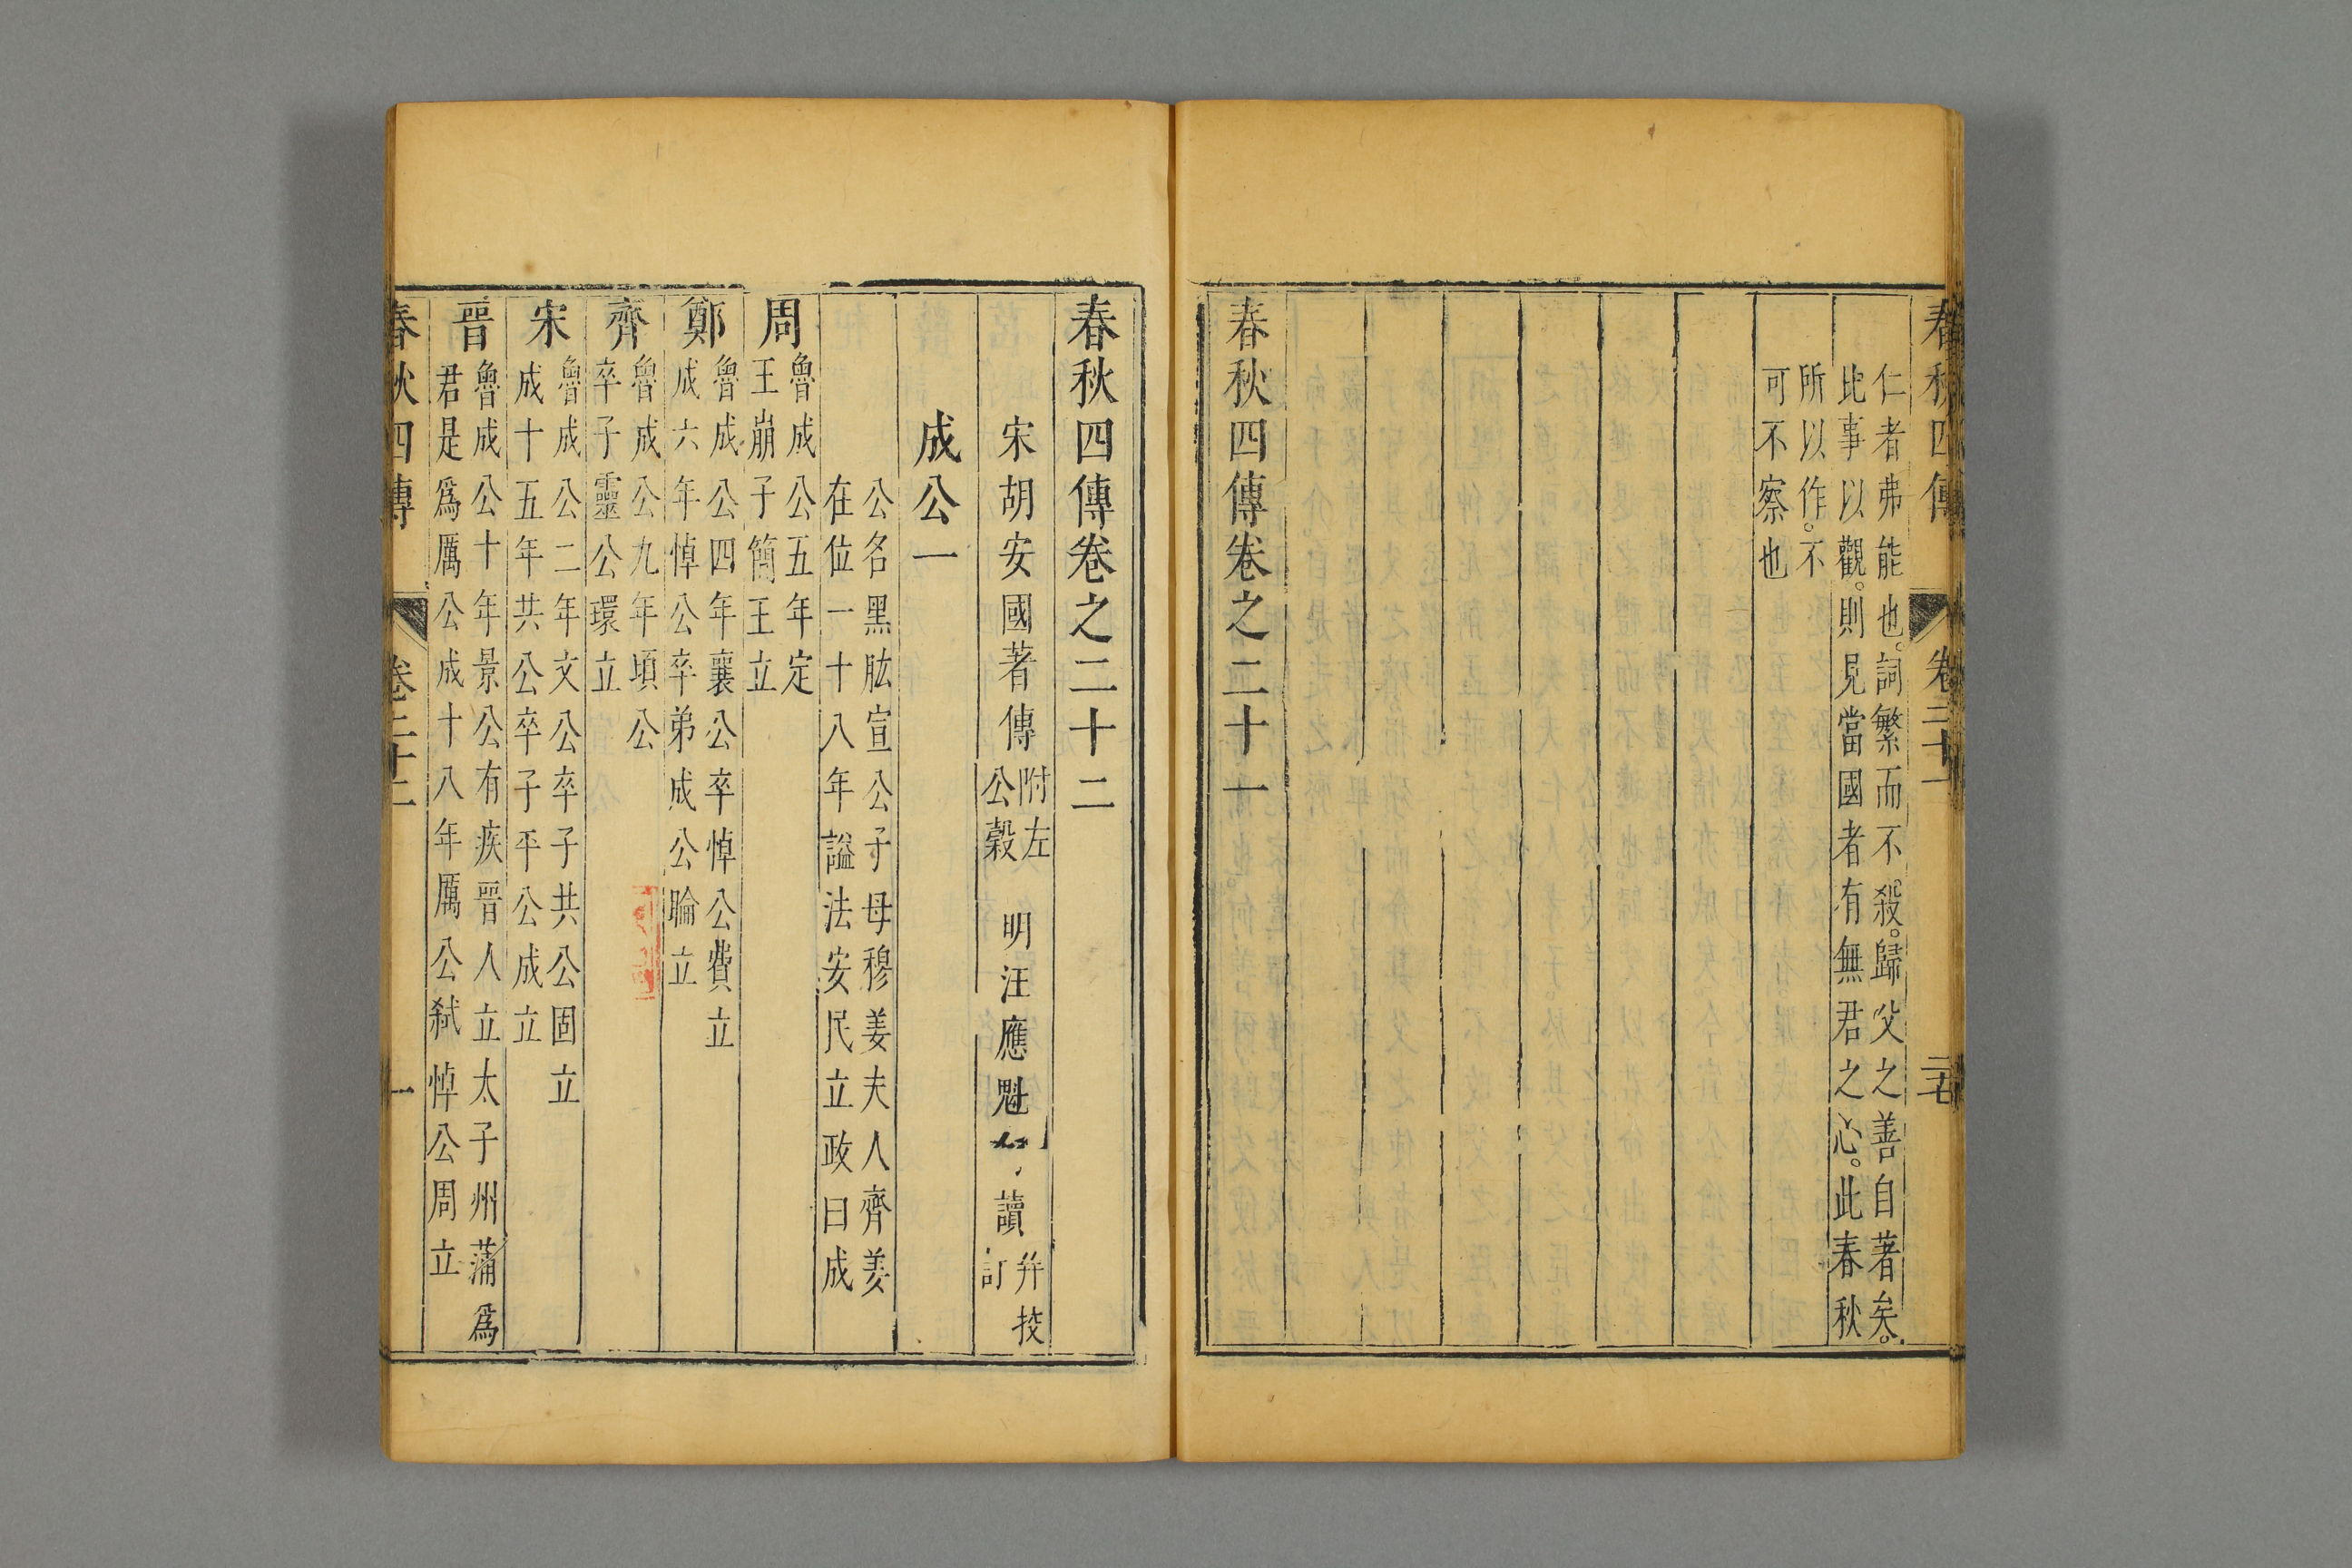 春秋四傳 卷二十一 二七
仁者弗能也。詞繁而不殺。歸父之善自著矣。
比事以觀。則見當國者有無君之心。此春秋
所以作。不
可不察也
春秋四傳卷之二十一
春秋四傳卷之二十二
宋胡安國著傳 附左公穀 明汪應魁 讀 并挍訂
成公一
公名黑肱宣公子母穆姜夫人齊姜
在位一十八年謚法安民立政曰成
周 魯成公五年定
王崩子簡王立
鄭 魯成公四年襄公卒悼公費立
成六年悼公卒弟成公睔立
齊 魯成公九年頃公
卒子靈公環立
宋 魯成公二年文公卒子共公固立
成十五年共公卒子平公成立
晉 魯成公十年景公有疾晉人立太子州蒲爲
君是爲厲公成十八年厲公弒悼公周立
春秋四傳 卷二十二 一